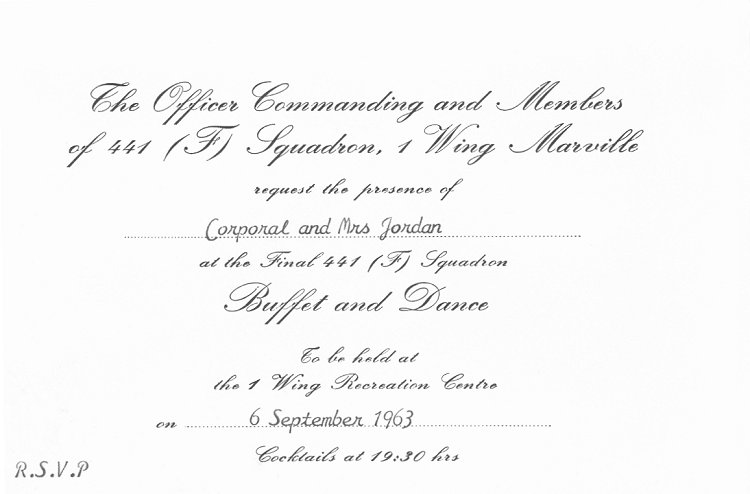 The Officer Commanding and Members
of 441 (F) Squadron, 1 Wing Marville
request the presence of
Corporal and Mrs Jordan
at the Final 441 (F) Squadron
Buffet and Dance
To be held at
the 1 Wing Recreation Centre
on 6 September 1963
Cocktails at 19:30 hrs
R.S.V.P